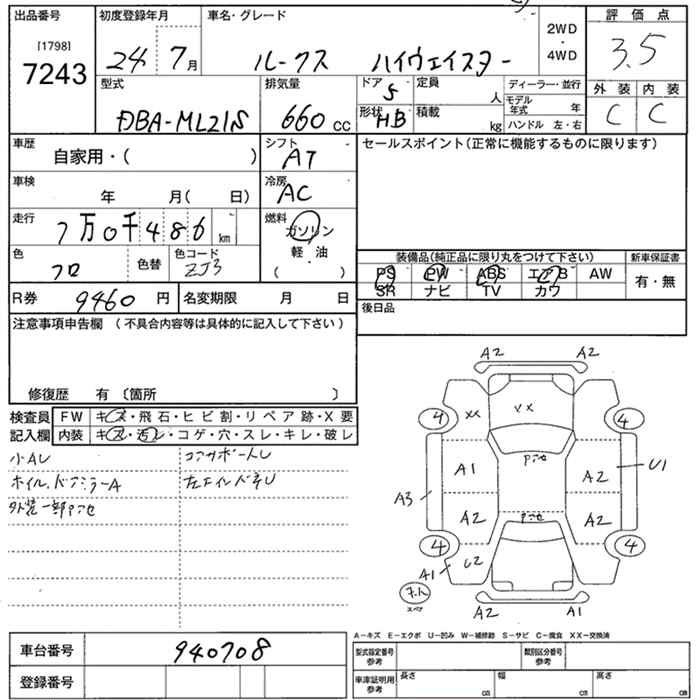 出品番号
[1798]
7243
初度登録年月
24 7月
車名・グレード
ルークス ハイウェイスター
2WD
・
4WD
評価点
3.5
型式
DBA-ML21S
排気量
660 cc
ドア 5
形状 HB
定員 人
積載 kg
ディーラー・並行
モデル年式 年
ハンドル 左・右
外装 内装
C C
車歴
自家用・( )
シフト
AT
セールスポイント(正常に機能するものに限ります)
車検
年 月( 日)
冷房
AC
走行
7万0千486 km
燃料
ガソリン
軽・油
( )
色
クロ
色替
色コード
ZJ3
装備品(純正品に限り丸をつけて下さい)
新車保証書
PS PW ABS エアB AW
SR ナビ TV カワ
有・無
R券 9460 円
名変期限 月 日
後日品
注意事項申告欄 (不具合内容等は具体的に記入して下さい)
修復歴 有 〔箇所 〕
検査員
記入欄
FW キズ・飛石・ヒビ割・リペア跡・X要
内装 キズ・汚レ・コゲ・穴・スレ・キレ・破レ
小AU
コアサポートU
外装一部
A2 A2
XX
4 4
A1
A2
U1
A3
A2
A2
4 4
U2
A1
A2 A1
A−キズ E−エクボ U−凹み W−補修跡 S−サビ C−腐食 XX−交換済
車台番号 940708
登録番号
型式指定番号
参考
類別区分番号
参考
車庫証明用
参考
長さ cm
幅 cm
高さ cm